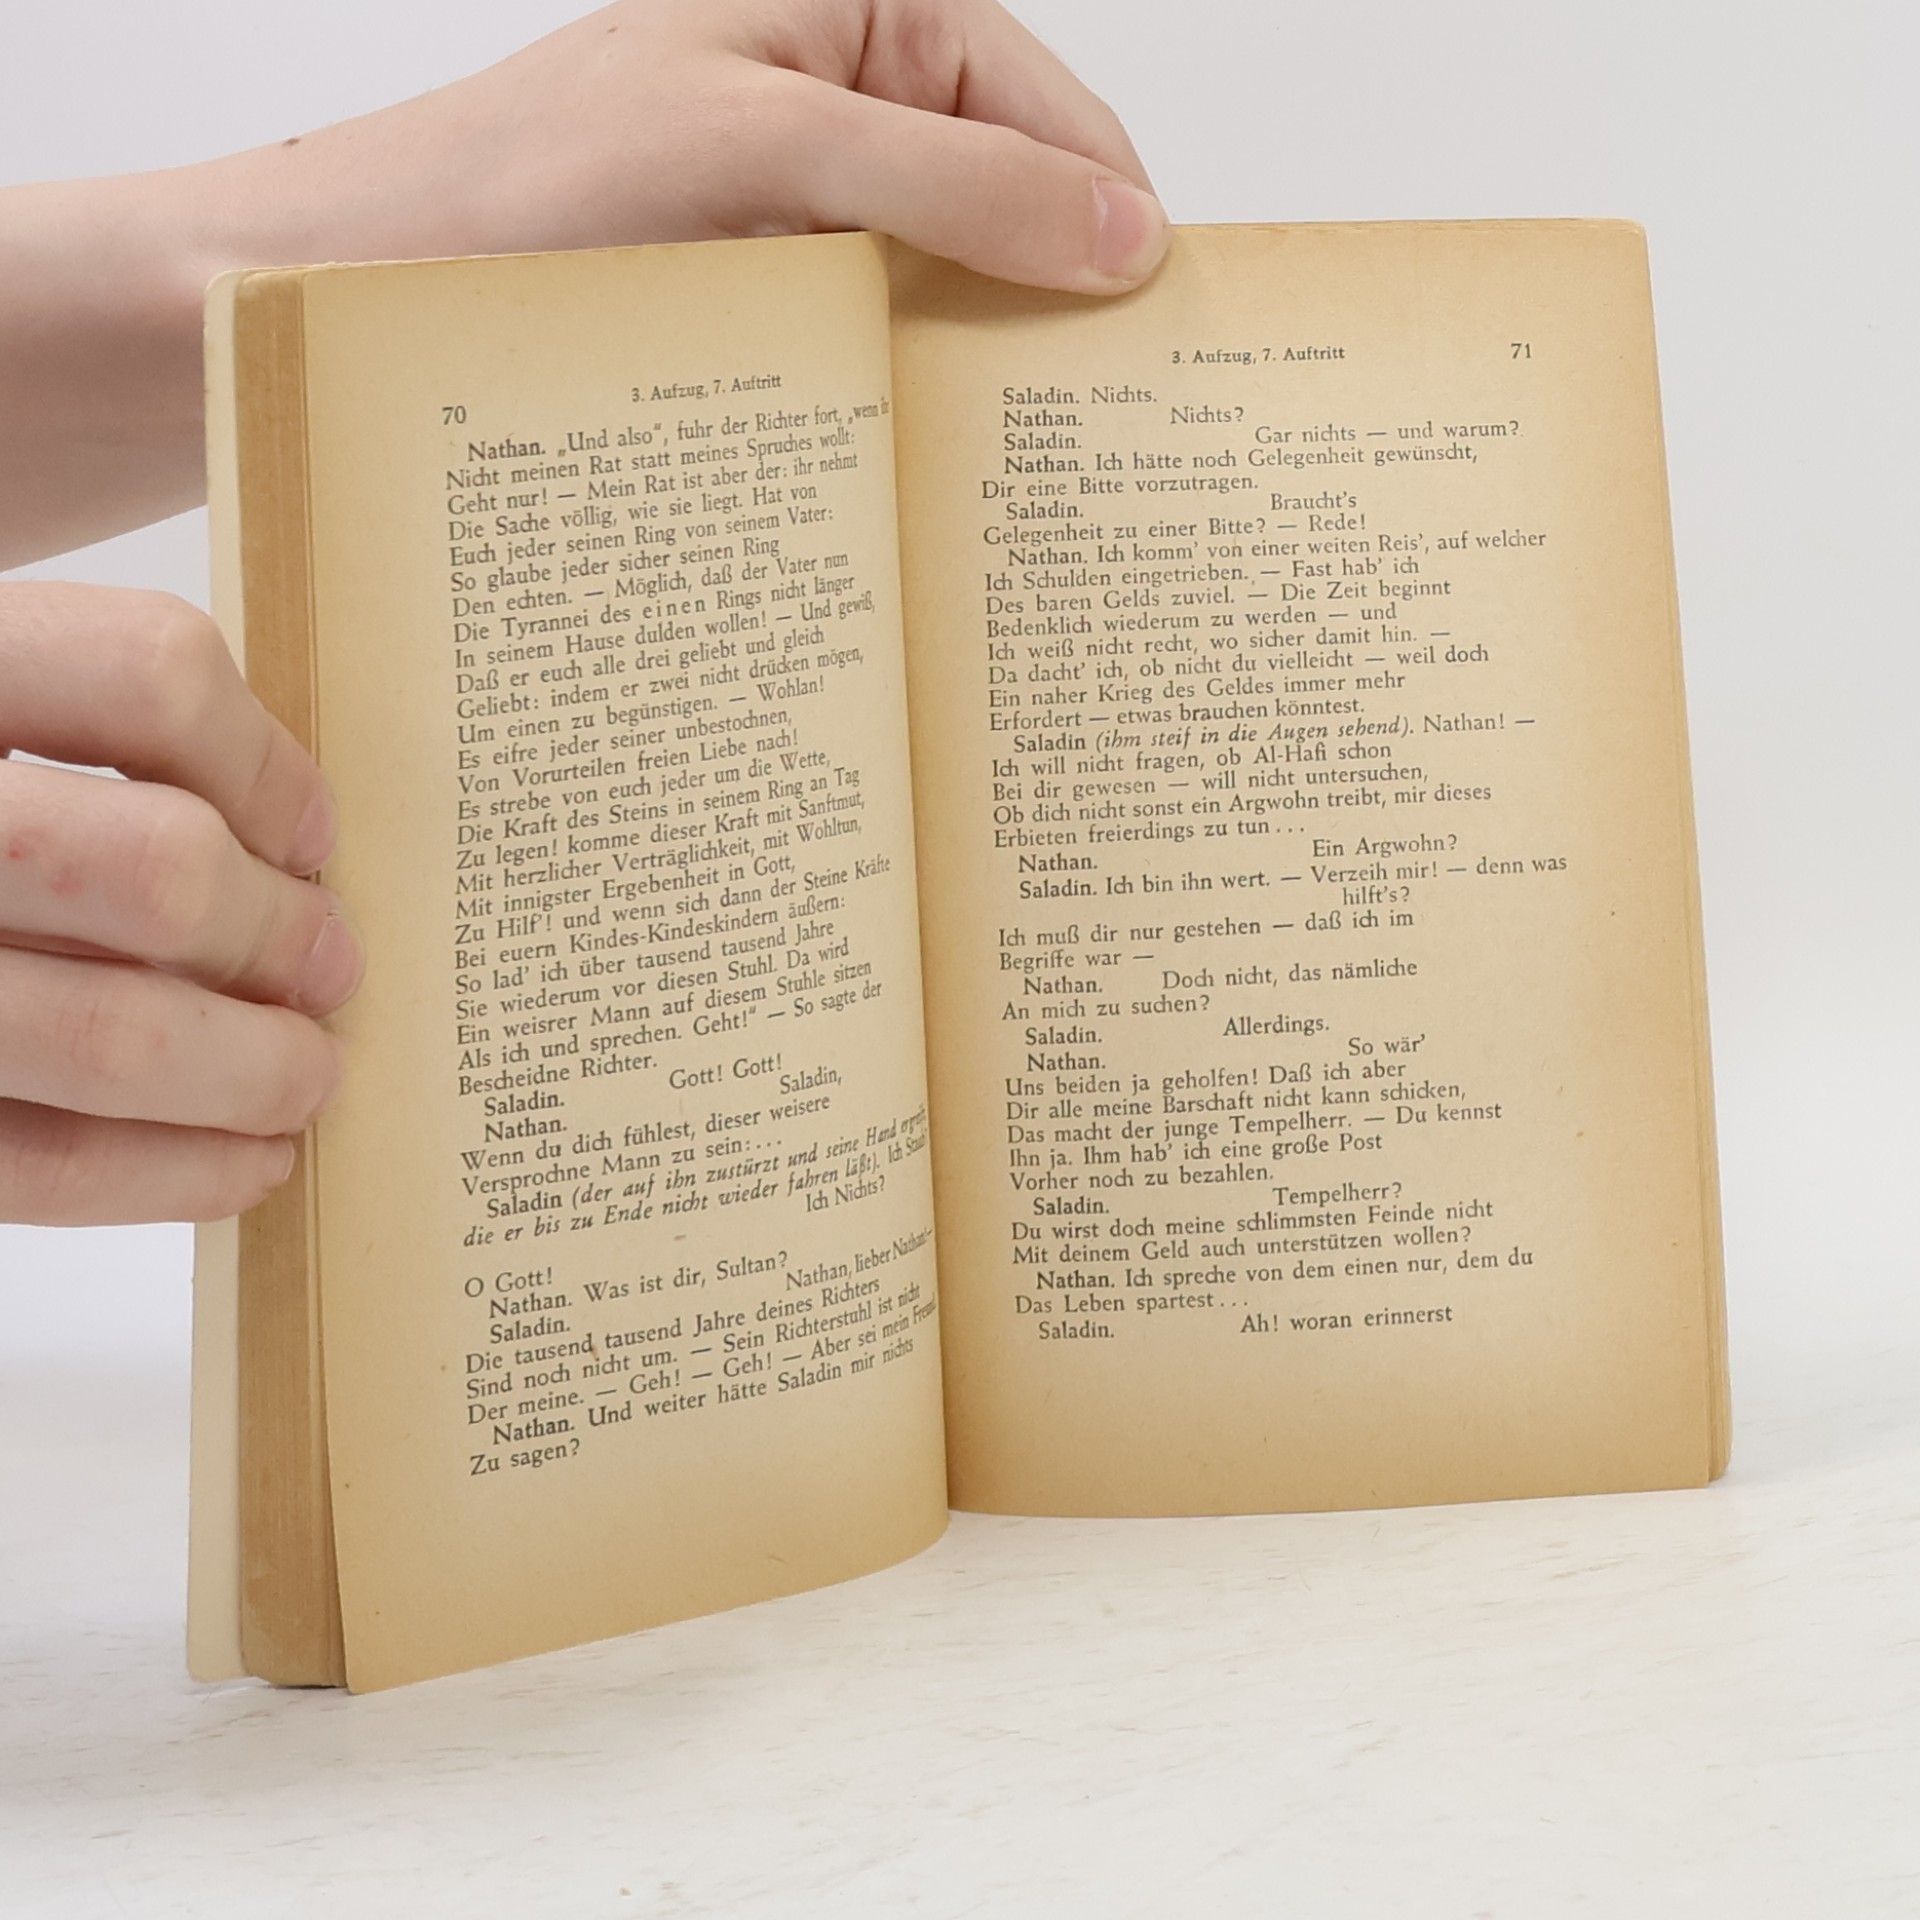 70
3. Aufzug, 7. Auftritt
Nathan. „Und also“, fuhr der Richter fort, „wenn ihr
Nicht meinen Rat statt meines Spruches wollt:
Geht nur! — Mein Rat ist aber der: ihr nehmt
Die Sache völlig, wie sie liegt. Hat von
Euch jeder seinen Ring von seinem Vater:
So glaube jeder sicher seinen Ring
Den echten. — Möglich, daß der Vater nun
Die Tyrannei des einen Rings nicht länger
In seinem Hause dulden wollen! — Und gewiß,
Daß er euch alle drei geliebt und gleich
Geliebt: indem er zwei nicht drücken mögen,
Um einen zu begünstigen. — Wohlan!
Es eifre jeder seiner unbestochnen,
Von Vorurteilen freien Liebe nach!
Es strebe von euch jeder um die Wette,
Die Kraft des Steins in seinem Ring an Tag
Zu legen! komme dieser Kraft mit Sanftmut,
Mit herzlicher Verträglichkeit, mit Wohltun,
Mit innigster Ergebenheit in Gott,
Zu Hilf’! und wenn sich dann der Steine Kräfte
Bei euern Kindes-Kindeskindern äußern:
So lad’ ich über tausend tausend Jahre
Sie wiederum vor diesen Stuhl. Da wird
Ein weisrer Mann auf diesem Stuhle sitzen
Als ich und sprechen. Geht!“ — So sagte der
Bescheidne Richter.
Saladin. Gott! Gott!
Nathan. Saladin,
Wenn du dich fühlest, dieser weisere
Versprochne Mann zu sein: . . .
Saladin (der auf ihn zustürzt und seine Hand ergreift,
die er bis zu Ende nicht wieder fahren läßt). Ich Staub?
Ich Nichts?
O Gott!
Nathan. Was ist dir, Sultan?
Saladin. Nathan, lieber Nathan! —
Die tausend tausend Jahre deines Richters
Sind noch nicht um. — Sein Richterstuhl ist nicht
Der meine. — Geh! — Geh! — Aber sei mein Freund.
Nathan. Und weiter hätte Saladin mir nichts
Zu sagen?
3. Aufzug, 7. Auftritt
71
Saladin. Nichts.
Nathan. Nichts?
Saladin. Gar nichts — und warum?
Nathan. Ich hätte noch Gelegenheit gewünscht,
Dir eine Bitte vorzutragen.
Saladin. Braucht’s
Gelegenheit zu einer Bitte? — Rede!
Nathan. Ich komm’ von einer weiten Reis’, auf welcher
Ich Schulden eingetrieben. — Fast hab’ ich
Des baren Gelds zuviel. — Die Zeit beginnt
Bedenklich wiederum zu werden — und
Ich weiß nicht recht, wo sicher damit hin. —
Da dacht’ ich, ob nicht du vielleicht — weil doch
Ein naher Krieg des Geldes immer mehr
Erfordert — etwas brauchen könntest.
Saladin (ihm steif in die Augen sehend). Nathan! —
Ich will nicht fragen, ob Al-Hafi schon
Bei dir gewesen — will nicht untersuchen,
Ob dich nicht sonst ein Argwohn treibt, mir dieses
Erbieten freierdings zu tun . . .
Nathan. Ein Argwohn?
Saladin. Ich bin ihn wert. — Verzeih mir! — denn was
hilft’s?
Ich muß dir nur gestehen — daß ich im
Begriffe war —
Nathan. Doch nicht, das nämliche
An mich zu suchen?
Saladin. Allerdings.
Nathan. So wär’
Uns beiden ja geholfen! Daß ich aber
Dir alle meine Barschaft nicht kann schicken,
Das macht der junge Tempelherr. — Du kennst
Ihn ja. Ihm hab’ ich eine große Post
Vorher noch zu bezahlen.
Saladin. Tempelherr?
Du wirst doch meine schlimmsten Feinde nicht
Mit deinem Geld auch unterstützen wollen?
Nathan. Ich spreche von dem einen nur, dem du
Das Leben spartest . . .
Saladin. Ah! woran erinnerst